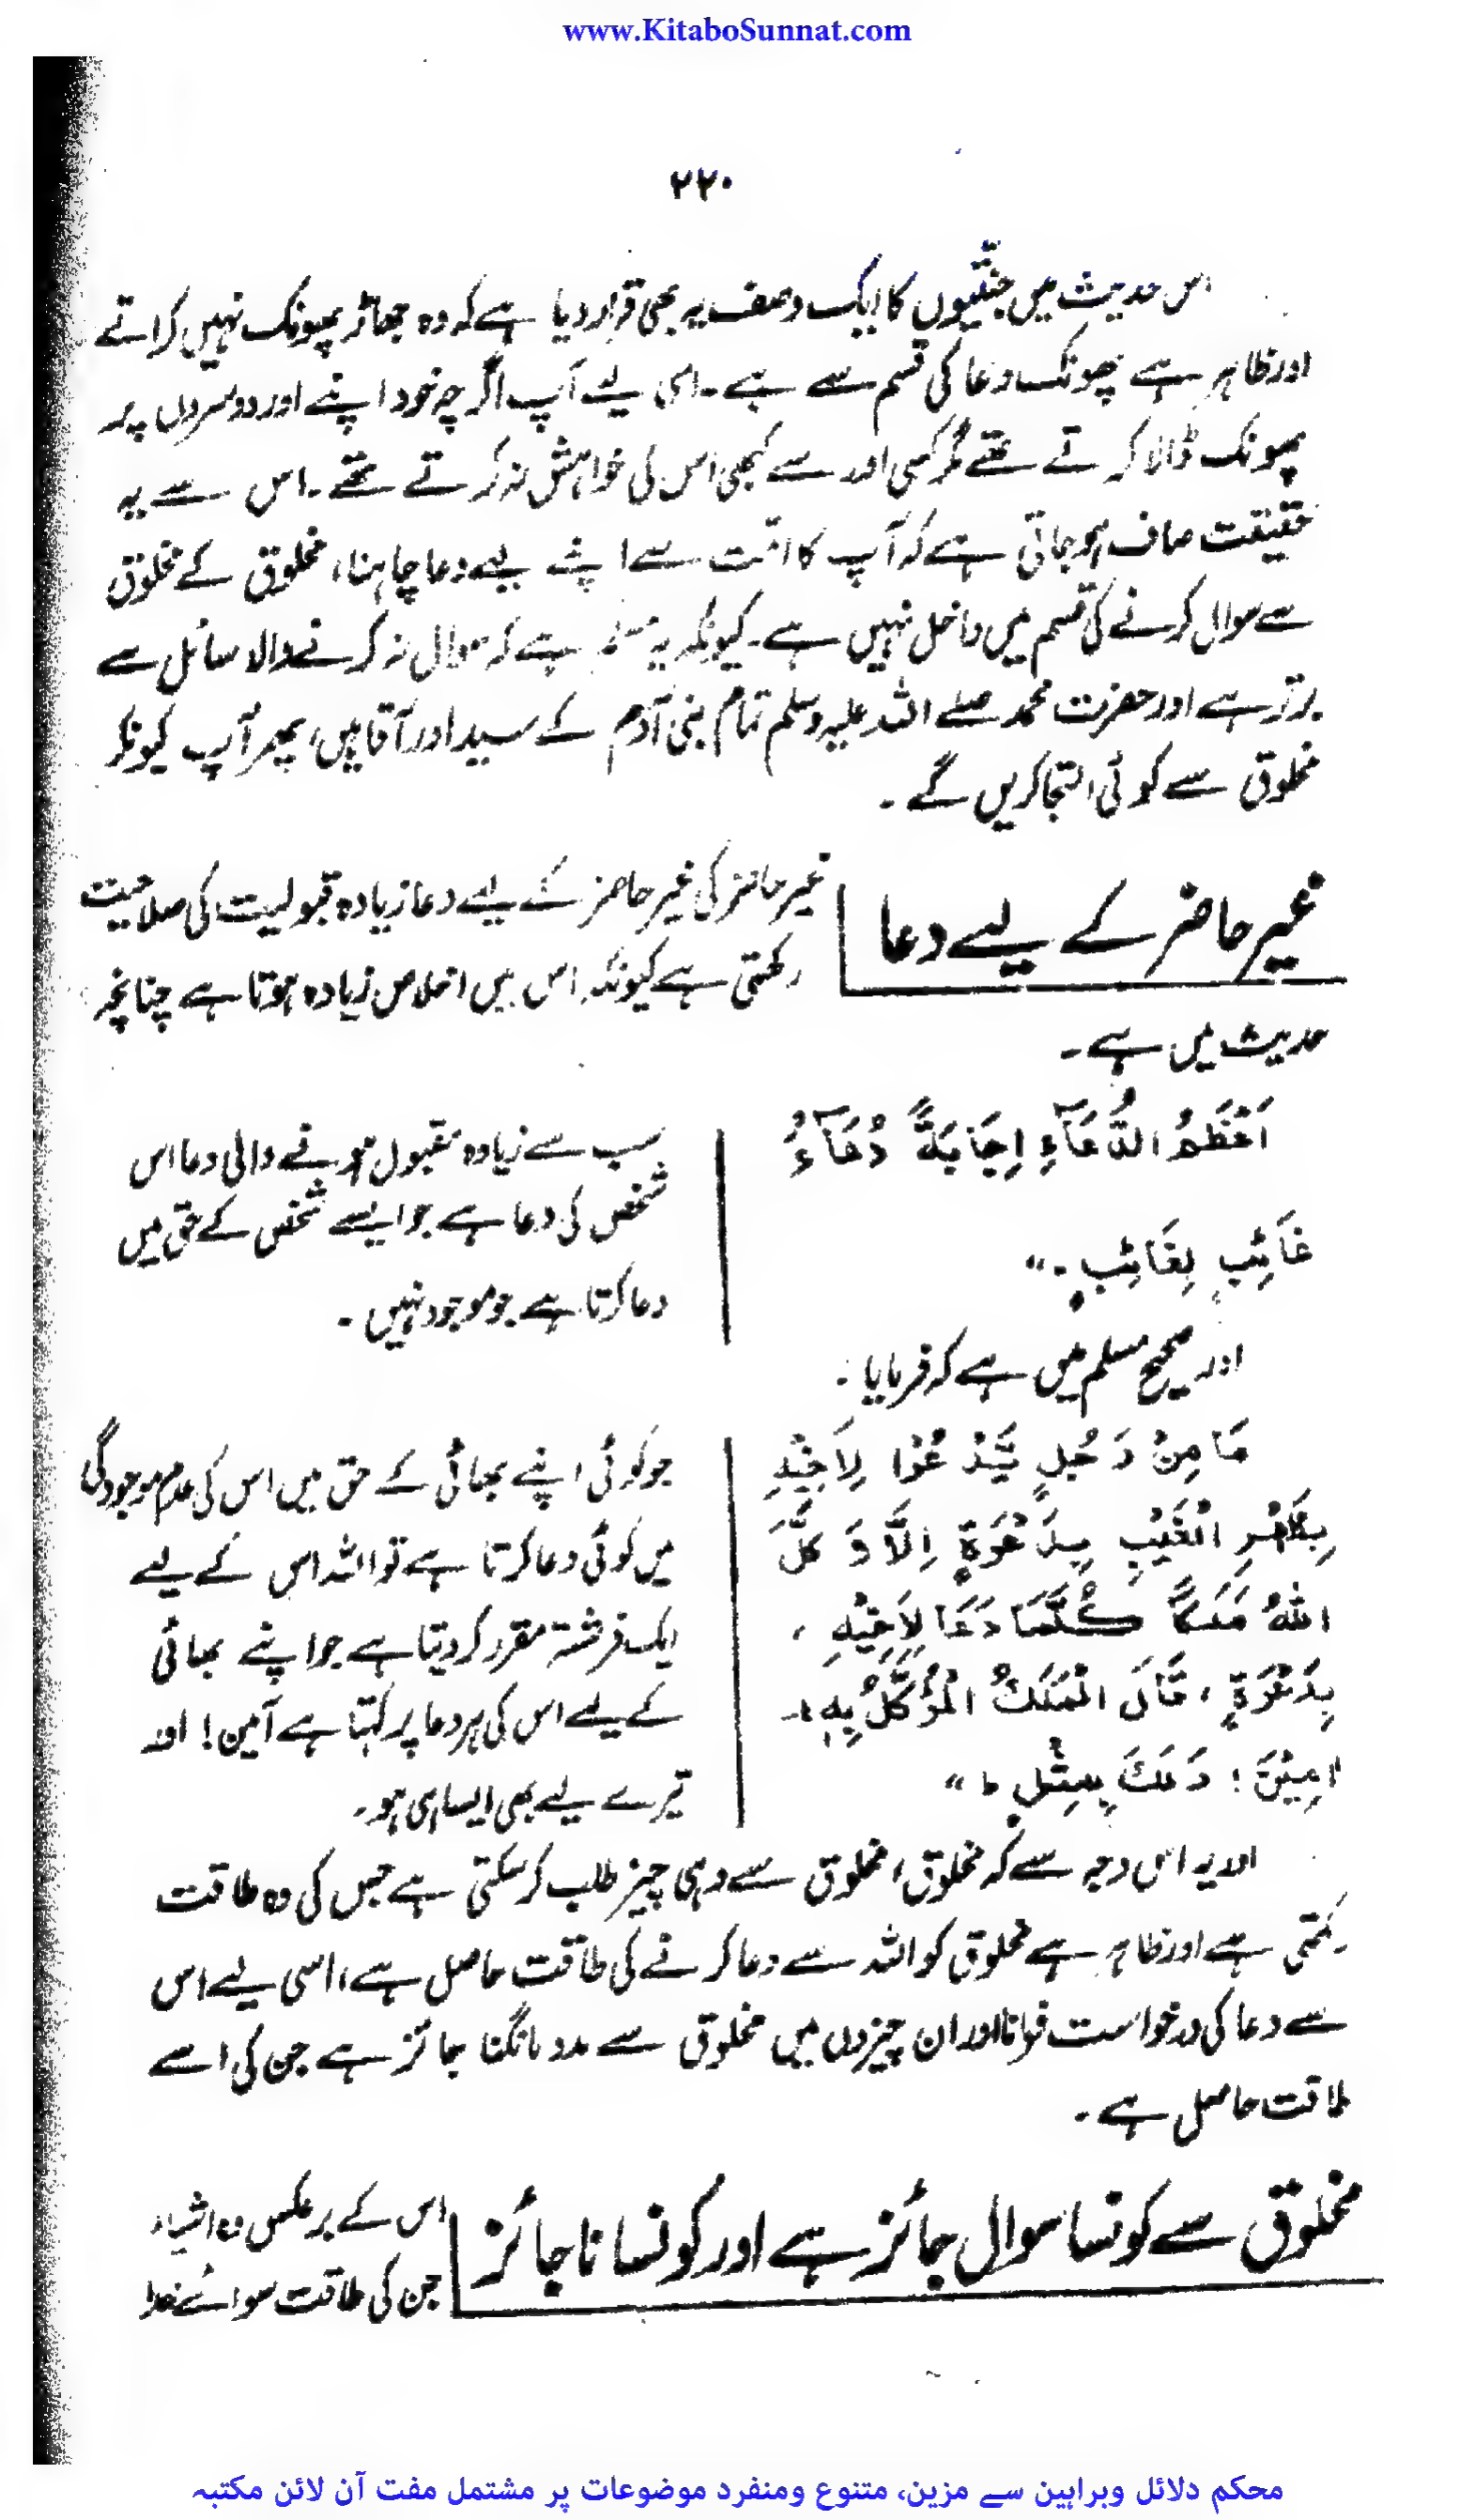 www.KitaboSunnat.com
۲۲۰
اس حدیث میں جنتیوں کا ایک وصف یہ بھی قرار دیا ہے کہ وہ جھاڑ پھونک نہیں کراتے
اور ظاہر ہے پھونک دعا کی قسم سے ہے۔ اسی لیے آپ اگرچہ خود اپنے اور دوسروں پر
پھونک ڈالا کرتے تھے مگر کسی اور سے کبھی اس کی خواہش نہ کرتے تھے۔ اس سے یہ
حقیقت صاف ہو جاتی ہے کہ آپ کا امت سے اپنے لیے دعا چاہنا، مخلوق کے مخلوق
سے سوال کرنے کی قسم میں داخل نہیں ہے۔ کیونکہ یہ مسلم ہے کہ سوال نہ کرنے والا سائل سے
برتر ہے اور حضرت محمد صلے اللہ علیہ وسلم تمام بنی آدم کے سید اور آقا ہیں، پھر آپ کیونکر
مخلوق سے کوئی التجا کریں گے۔
غیر حاضر کے لیے دعا
غیر حاضر کی غیر حاضر کے لیے دعا زیادہ قبولیت کی صلاحیت
رکھتی ہے کیونکہ اس میں اخلاص زیادہ ہوتا ہے چنانچہ
حدیث میں ہے۔
اَعْظَمُ الدُّعَآءِ اِجَابَةً دُعَآءُ
غَائِبٍ بِغَائِبٍ۔"
سب سے زیادہ مقبول ہونے والی دعا اس
شخص کی دعا ہے جو ایسے شخص کے حق میں
دعا کرتا ہے جو موجود نہیں۔
اور صحیح مسلم میں ہے کہ فرمایا۔
مَا مِنْ رَجُلٍ يَّدْعُوْا لِاَخِيْهِ
بِظَهْرِ الْغَيْبِ بِدَعْوَةٍ اِلَّا وَكَّلَ
اللهُ مَلَكًا كُلَّمَا دَعَا لِاَخِيْهِ،
بِدَعْوَةٍ، قَالَ الْمَلَكُ الْمُؤَكَّلُ بِهٖ:۔
اٰمِيْنَ! وَلَكَ بِمِثْلٍ۔"
جو کوئی اپنے بھائی کے حق میں اس کی عدم موجودگی
میں کوئی دعا کرتا ہے تو اللہ اس کے لیے
ایک فرشتہ مقرر کر دیتا ہے جو اپنے بھائی
کے لیے اس کی ہر دعا پر کہتا ہے آمین! اور
تیرے لیے بھی ایسا ہی ہو۔
اور یہ اس وجہ سے کہ مخلوق، مخلوق سے وہی چیز طلب کر سکتی ہے جس کی وہ طاقت
رکھتی ہے اور ظاہر ہے مخلوق کو اللہ سے دعا کرنے کی طاقت حاصل ہے، اسی لیے اس
سے دعا کی درخواست فرمانا اور ان چیزوں میں مخلوق سے مدد مانگنا جائز ہے جن کی اسے
طاقت حاصل ہے۔
مخلوق سے کونسا سوال جائز ہے اور کونسا ناجائز
اس کے برعکس وہ اشیاء
جن کی طاقت سوائے خدا
محکم دلائل وبراہین سے مزین، متنوع ومنفرد موضوعات پر مشتمل مفت آن لائن مکتبہ